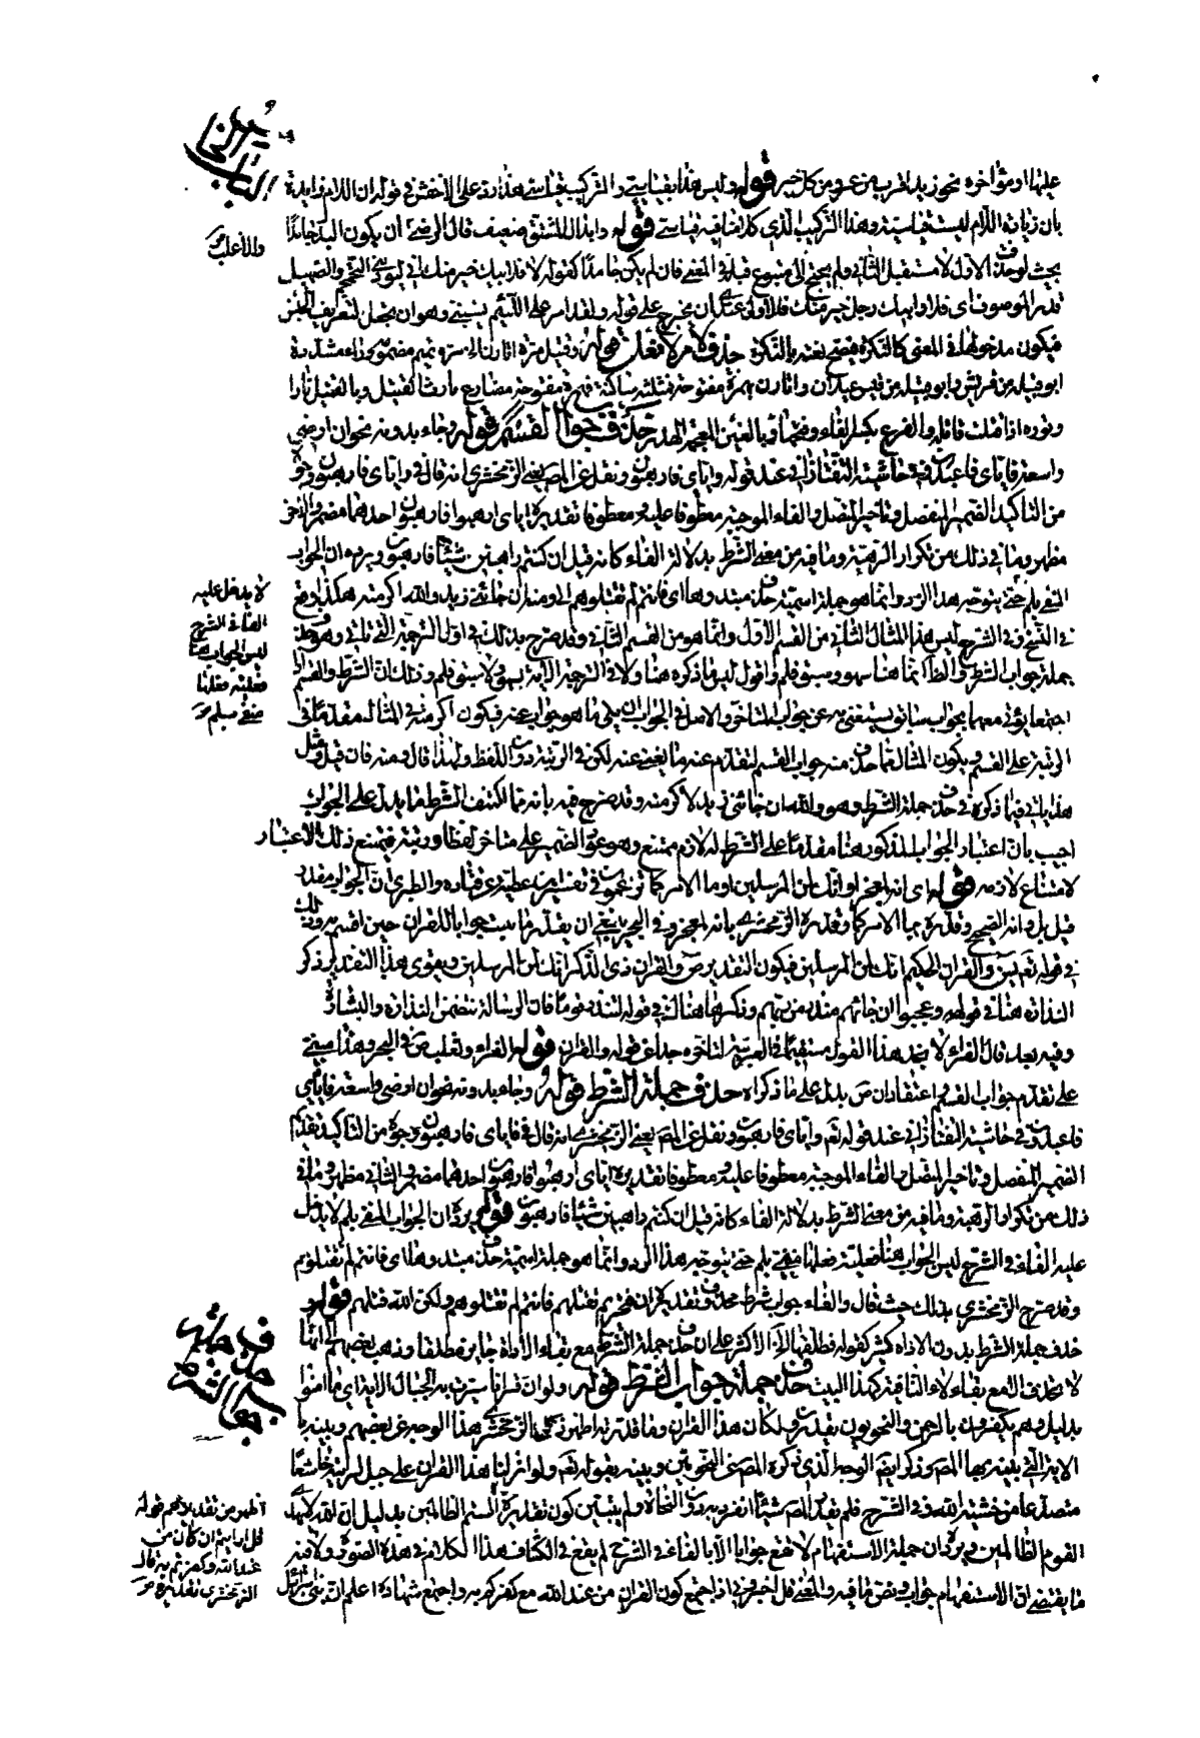 عليها او مؤاخره نحو زيد اقرب من عمرو من كل خير قوله وليس هذا بقياسي والتركيب قياسي هذا رد على الاخفش في قوله ان اللام زايدة
بان زيادة اللام ليست قياسية وهذا التركيب الذي كلامنا فيه قياسي قوله وابدال المشتق ضعيف قال الرضي ان يكون البدل جامدا
بحيث لو حذف الاول لاستقل الثاني ولم يحتج الى متبوع قبله في المعنى فان لم يكن جامدا كقوله لا وابيك خير منك اني ليؤذيني التحمحم والصهيل
قدر الموصوف اي فلا وابيك رجل خير منك فالاولى عندي ان يخرج على قوله ولقد امر على اللئيم يسبني وهو ان يجعل لتعريف الجنس
فيكون مدخولها في المعنى كالنكرة فيصح نعته بالنكرة حذف لام لافعلن قوله وقيل مرة اثارن
ابو قبيلة من قريش وابو قبيلة من قيس عيلان واثارن بهمزة مفتوحة فمثلثة ساكنة فهمزة مفتوحة مضارع ثارت القتيل وبالقتيل ثارا
وثوره اذا قتلت قاتله والفرغ بكسر الفاء وفتحها وبالغين المعجمة الهدر حذف جواب القسم قوله وجاء بدونه نحو ان ارضي
واسعة فاياي فاعبدون في حاشية التفتازاني عند قوله واياي فارهبون ونقل عن المص يعني الزمخشري انه قال في واياي فارهبون وجوه
من التاكيد الضمير المنفصل وتاخير المتصل والفاء الموجبة معطوفا عليه ومعطوفا تقديره اياي ارهبوا فارهبون احدهما مضمر والاخر
مظهر وما في ذلك من تكرار الرهبة وما فيه من معنى الشرط بدلالة الفاء كانه قيل ان كنتم راهبين شيئا فارهبون ويرده ان الجواب
المنفي بلم حتى يتوجه هذا الرد وانما هو جملة اسمية حذف مبتدوها اي فانتم لم تقتلوهم اي ومنه ان جاءني زيد والله اكرمته هكذا وقع
في النسخ وفي الشرح ليس هذا المثال الثاني من القسم الاول وانما هو من القسم الثاني وقد صرح بذلك في اول الترجمة التي تلي وهو حذف
جملة جواب الشرط والظاهر انما هنا سهو وسبق قلم واقول ليس ما ذكره هنا ولا في الترجمة الاتية بسهو ولا سبق قلم وذلك ان الشرط والقسم اذا
اجتمعا يؤتى معهما بجواب سابق يستغنى به عن جواب المتاخر والاصل في الجواب ان يلي ما هو جواب عنه فيكون اكرمته في المثال مقدما في
الرتبة على القسم ويكون المثال مما حذف منه جواب القسم لتقدم عنه ما يغني عنه لكن في الرتبة دون اللفظ ولهذا قال ومنه فان قيل ومثل
هذا ياتي فيما ذكره في حذف جملة الشرط وهو والله ان جاءني زيد لاكرمنه وقد صرح فيه بانه مما اكتنف الشرط ما يدل على الجواب
اجيب بان اعتبار الجواب المذكور هنا مقدما على الشرط له لازم ممتنع وهو عود الضمير على متاخر لفظا ورتبة فيمتنع ذلك الاعتبار
لامتناع لازمه قوله اي انه لمعجز او انك لمن المرسلين او ما الامر كما تزعمون في تفسير ابن عطية عن قتادة والطبري ان الجواب مقدر
قبل بل وانه الصحيح وقدره بما الامر كما وقدره الزمخشري بانه لمعجز وفي البحر ينبغي ان يقدر ما يثبت جوابا للقران حين اقسم به وذلك
في قوله تعم يس والقران الحكيم انك لمن المرسلين فيكون التقدير ص والقران ذي الذكر انك لمن المرسلين ويقوي هذا التقدير ذكر
النذارة هنا في قوله وعجبوا ان جاءهم منذر منهم وذكرها هنالك في قوله لتنذر قوما فان الرسالة تتضمن النذارة والبشارة
وفيه بعد قال الفراء لا نجد هذا القول مستقيما في العربية لتاخره جدا عن قوله والقران قوله الفراء وثعلب ص في البحر وهذا مبني
على تقدم جواب القسم واعتقاد ان ص يدل على ما ذكراه حذف جملة الشرط قوله وجاء بدونه نحو ان ارضي واسعة فاياي
فاعبدون في حاشية التفتازاني عند قوله تعم واياي فارهبون ونقل عن المص يعني الزمخشري انه قال في فاياي فارهبون وجوه من التاكيد تقديم
الضمير المنفصل وتاخير المتصل والفاء الموجبة معطوفا عليه ومعطوفا تقديره اياي ارهبوا فارهبون احدهما مضمر والثاني مظهر وما في
ذلك من تكرار الرهبة وما فيه من معنى الشرط بدلالة الفاء كانه قيل ان كنتم راهبين شيئا فارهبون قوله يرد ان الجواب المنفي بلم لا يدخل
عليه الفاء في الشرح ليس الجواب هنا فعلية فعلها منفي بلم حتى يتوجه هذا الرد وانما هو جملة اسمية حذف مبتدوها اي فانتم لم تقتلوهم
وقد صرح الزمخشري بذلك حيث قال والفاء جواب شرط محذوف وتقديره ان افتخرتم بقتلهم فانتم لم تقتلوهم ولكن الله قتلهم قوله و
حذف جملة الشرط بدون الاداة كثير كقوله فطلقها الاكثر على ان حذف جملة الشرط مع بقاء الاداة جايز مطلقا وذهب بعضهم الى انها
لا تحذف الا مع بقاء لا النافية كهذا البيت حذف جملة جواب الشرط قوله ولو ان قرانا سيرت به الجبال الاية اي لما امنوا
بدليل وهم يكفرون بالرحمن والنحويون يقدرون لكان هذا القران وما قدرته اظهر ذكر الزمخشري هذا الوجه عن بعضهم وبينه بما
الاية التي بينه بها المص وذكر ايضا الوجه الذي ذكره المص عن النحويين وبينه بقوله تعم ولو انزلنا هذا القران على جبل لرايته خاشعا
متصدعا من خشية الله وفي الشرح فلم يقدر المص شيئا انفرد به دون النحاة ولم يتبين كون تقديره الستم الظالمين بدليل ان الله لا يهدي
القوم الظالمين ويرد ان جملة الاستفهام لا تقع جوابا الا بالفاء في الشرح لم يقع في الكشاف هذا الكلام في هذه الصورة ولا فيه
ما يقتضي ان الاستفهام جواب ونص ما فيه والمعنى قل اخبروني اذا اجتمع كون القران من عند الله مع كفركم به واجتمع شهادة اعلم بني اسرائيل
الباب الخامس
والاغلب
لا يدخل عليه
الفاء في الشرح
ليس الجواب هنا
فعلية فعلها
منفي بلم
حذف جملة
جواب الشرط
اظهر من تقديرهم قوله
قل ارايتم ان كان من
عند الله وكفرتم به قال
الزمخشري تقديره